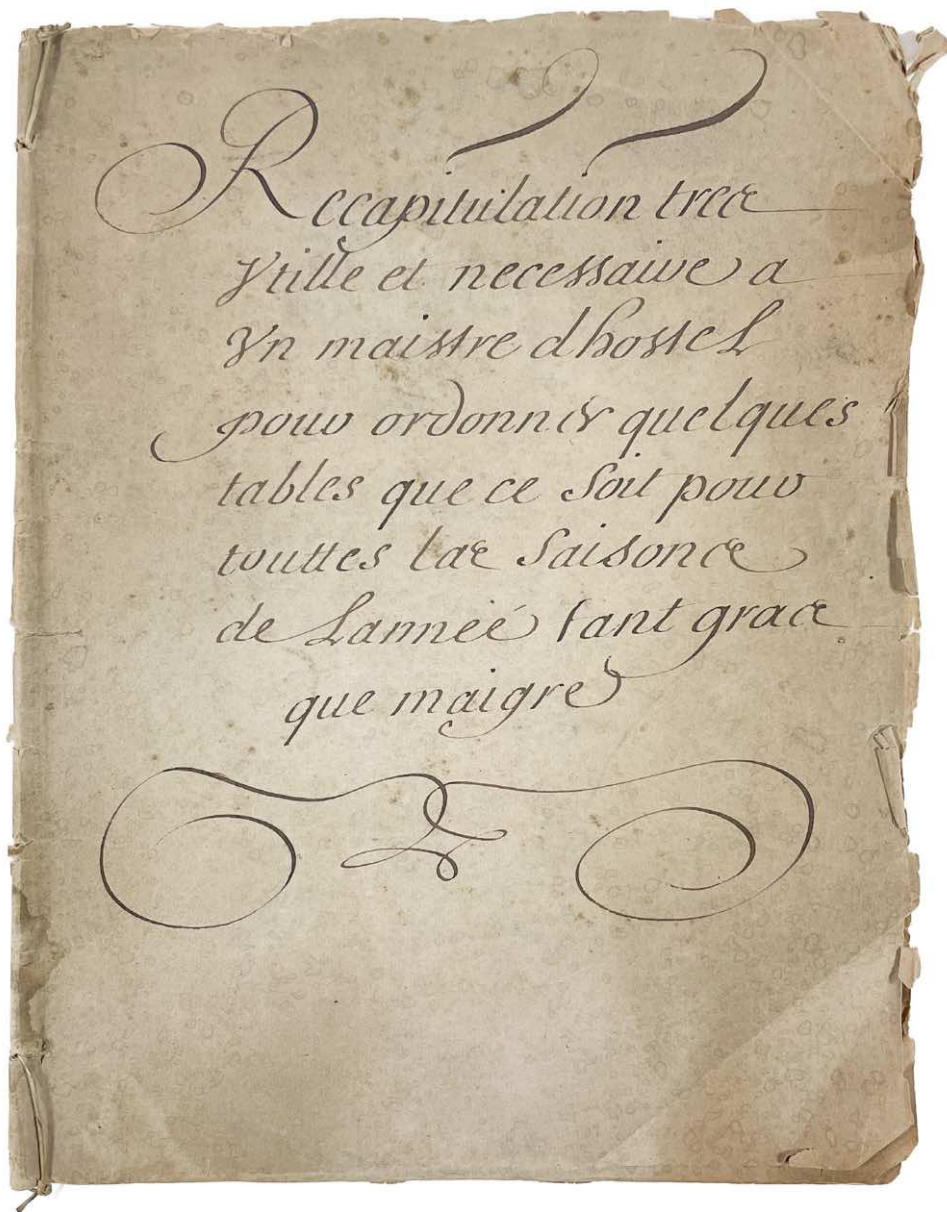 Reccapitulation tres
Vtille et necessaire a
Vn maistre dhostel
pour ordonner quelques
tables que ce soit pour
touttes les saisons
de Lanneé tant gras
que maigre